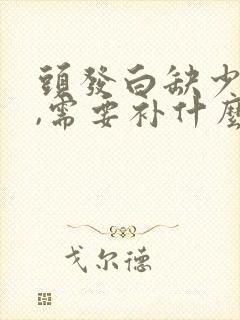 頭發白缺少
,需要补什麼
戈尔德